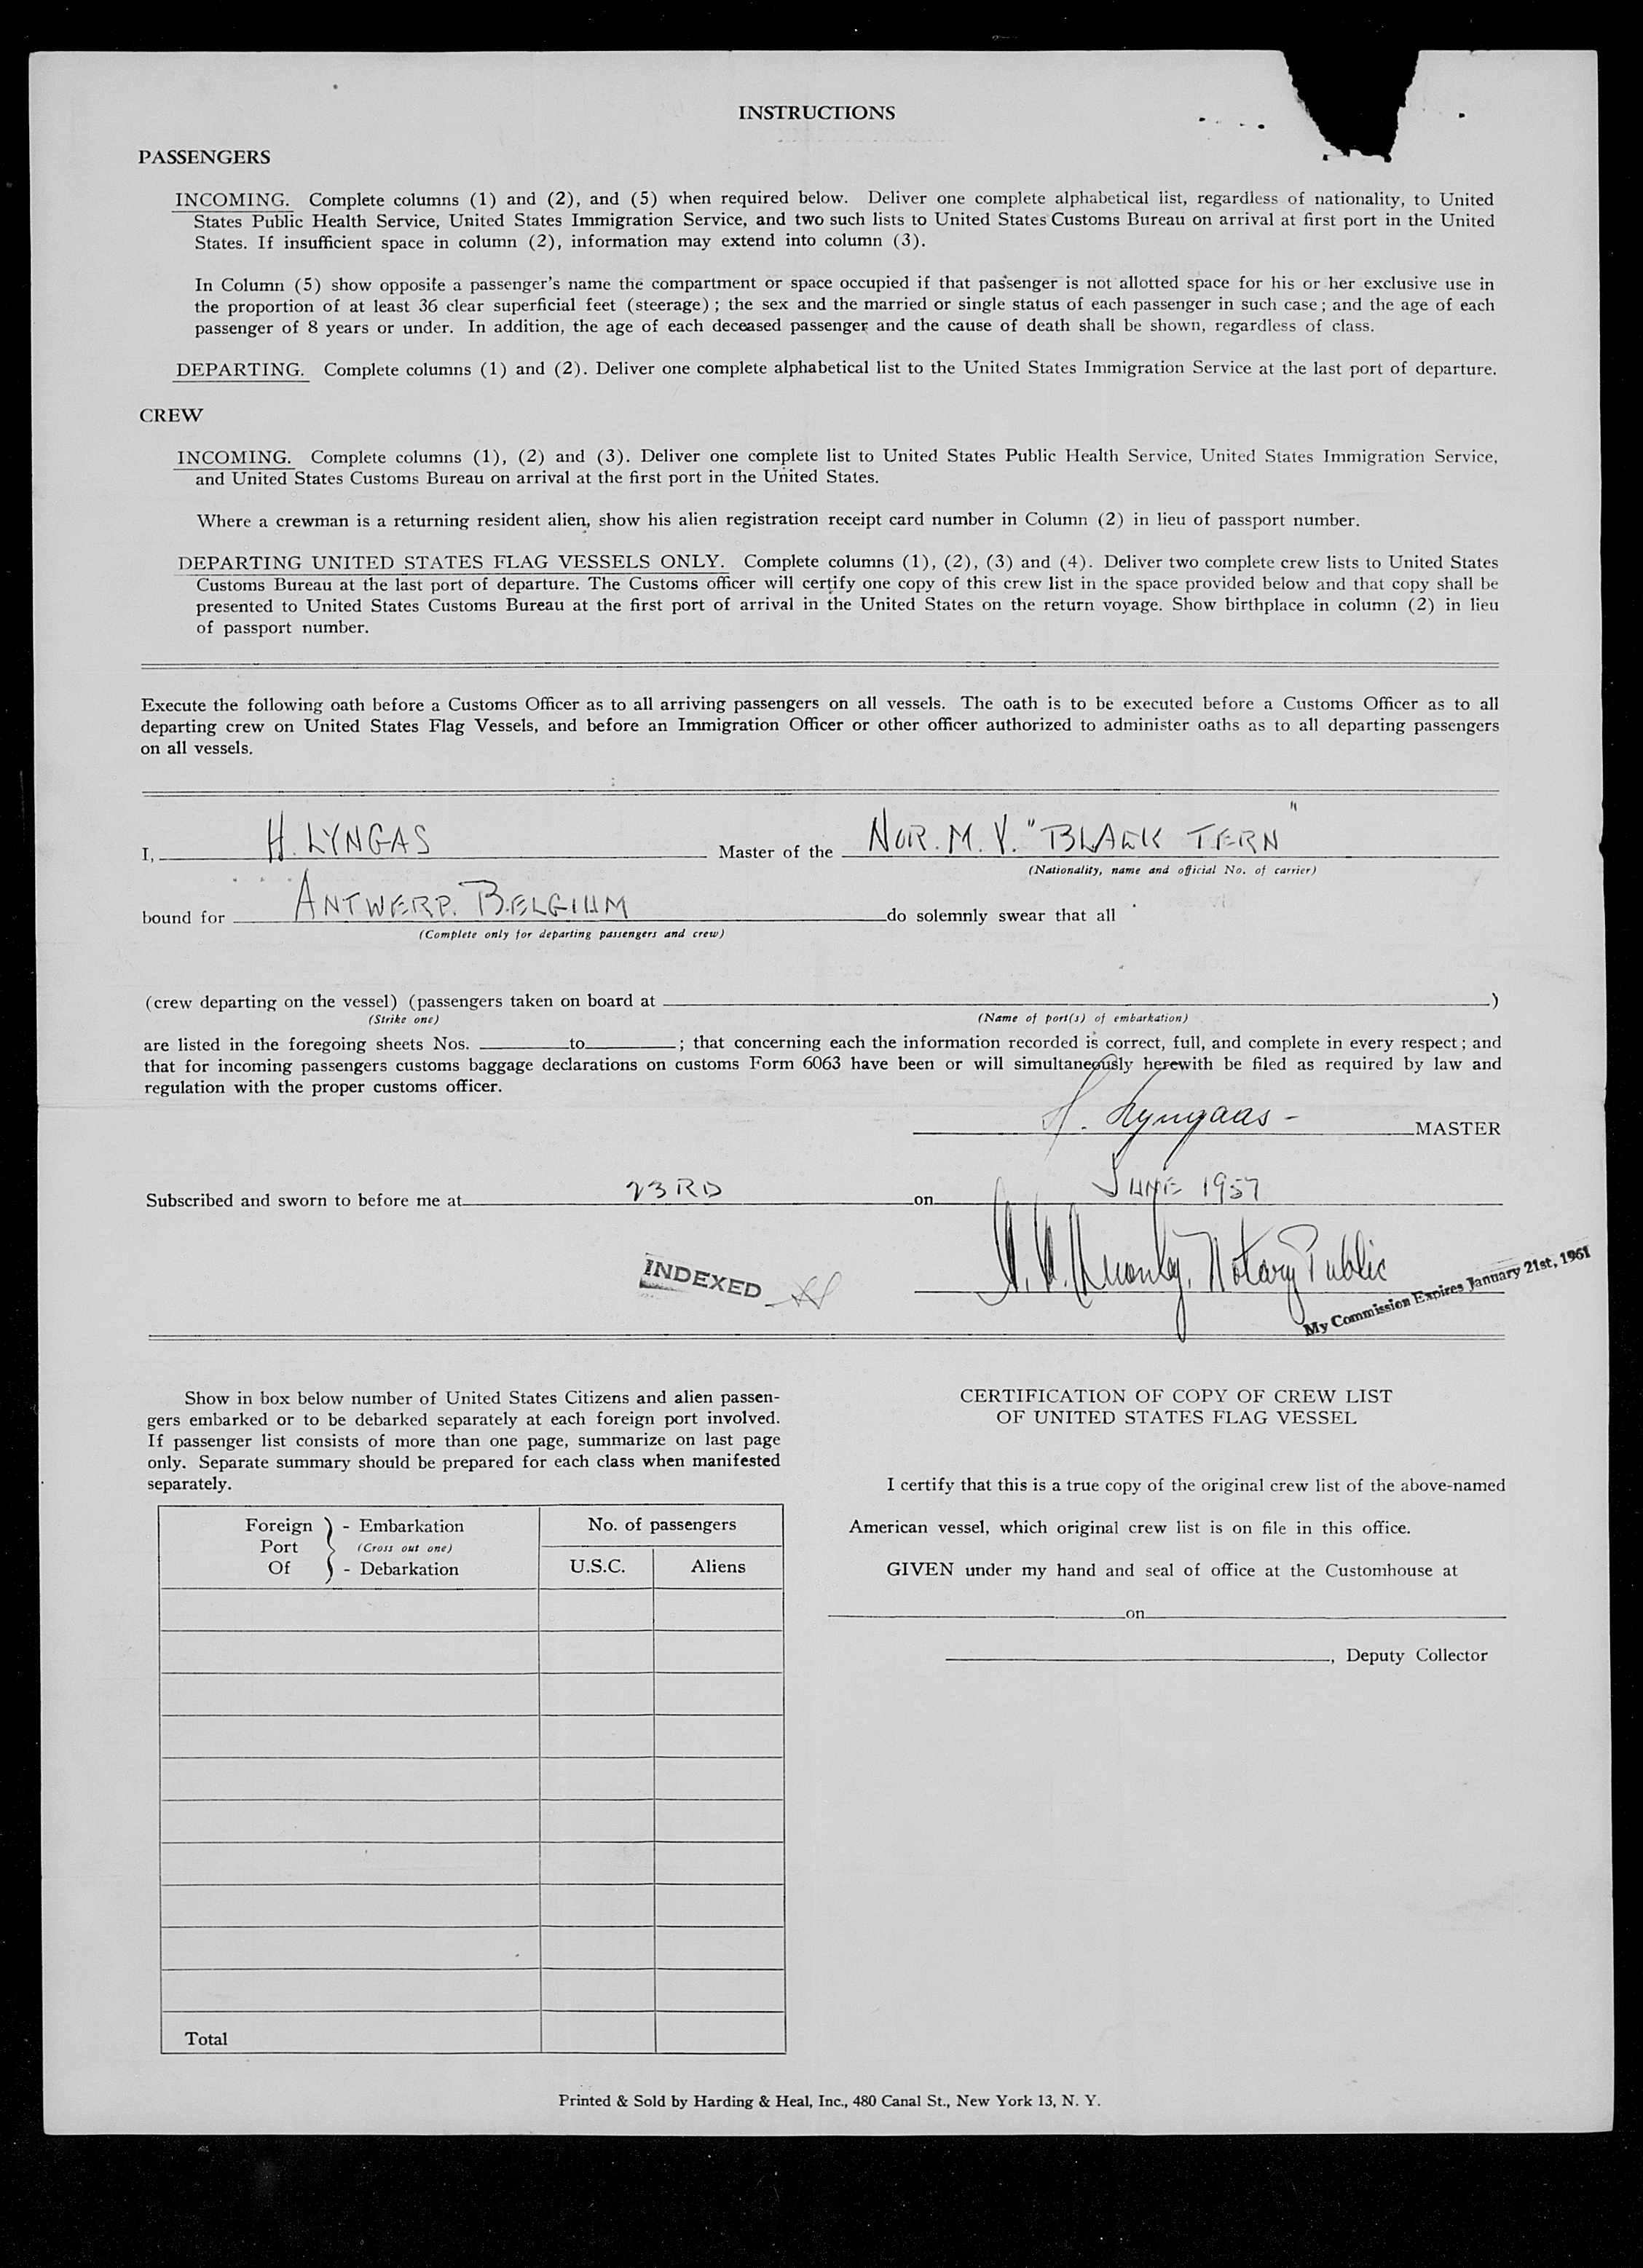 INSTRUCTIONS
PASSENGERS
INCOMING. Complete columns (1) and (2), and (5) when required below. Deliver one complete alphabetical list, regardless of nationality, to United
States Public Health Service, United States Immigration Service, and two such lists to United States Customs Bureau on arrival at first port in the United
States. If insufficient space in column (2), information may extend into column (3).
In Column (5) show opposite a passenger's name the compartment or space occupied if that passenger is not allotted space for his or her exclusive use in
the proportion of at least 36 clear superficial feet (steerage); the sex and the married or single status of each passenger in such case; and the age of each
passenger of 8 years or under. In addition, the age of each deceased passenger and the cause of death shall be shown, regardless of class.
DEPARTING. Complete columns (1) and (2). Deliver one complete alphabetical list to the United States Immigration Service at the last port of departure.
CREW
INCOMING. Complete columns (1), (2) and (3). Deliver one complete list to United States Public Health Service, United States Immigration Service,
and United States Customs Bureau on arrival at the first port in the United States.
Where a crewman is a returning resident alien, show his alien registration receipt card number in Column (2) in lieu of passport number.
DEPARTING UNITED STATES FLAG VESSELS ONLY. Complete columns (1), (2), (3) and (4). Deliver two complete crew lists to United States
Customs Bureau at the last port of departure. The Customs officer will certify one copy of this crew list in the space provided below and that copy shall be
presented to United States Customs Bureau at the first port of arrival in the United States on the return voyage. Show birthplace in column (2) in lieu
of passport number.
Execute the following oath before a Customs Officer as to all arriving passengers on all vessels. The oath is to be executed before a Customs Officer as to all
departing crew on United States Flag Vessels, and before an Immigration Officer or other officer authorized to administer oaths as to all departing passengers
on all vessels.
I, H. LYNGAS Master of the NOR. M. V. "BLACK TERN"
(Nationality, name and official No. of carrier)
bound for ANTWERP. BELGIUM do solemnly swear that all
(Complete only for departing passengers and crew)
(crew departing on the vessel) (passengers taken on board at )
(Strike one) (Name of port(s) of embarkation)
are listed in the foregoing sheets Nos. to ; that concerning each the information recorded is correct, full, and complete in every respect; and
that for incoming passengers customs baggage declarations on customs Form 6063 have been or will simultaneously herewith be filed as required by law and
regulation with the proper customs officer.
H. Lyngaas - MASTER
Subscribed and sworn to before me at 23RD on JUNE 1957
INDEXED
Notary Public
My Commission Expires January 21st, 1961
Show in box below number of United States Citizens and alien passen-
gers embarked or to be debarked separately at each foreign port involved.
If passenger list consists of more than one page, summarize on last page
only. Separate summary should be prepared for each class when manifested
separately.
Foreign - Embarkation No. of passengers
Port (Cross out one)
Of - Debarkation U.S.C. Aliens
Total
CERTIFICATION OF COPY OF CREW LIST
OF UNITED STATES FLAG VESSEL
I certify that this is a true copy of the original crew list of the above-named
American vessel, which original crew list is on file in this office.
GIVEN under my hand and seal of office at the Customhouse at
on
, Deputy Collector
Printed & Sold by Harding & Heal, Inc., 480 Canal St., New York 13, N. Y.